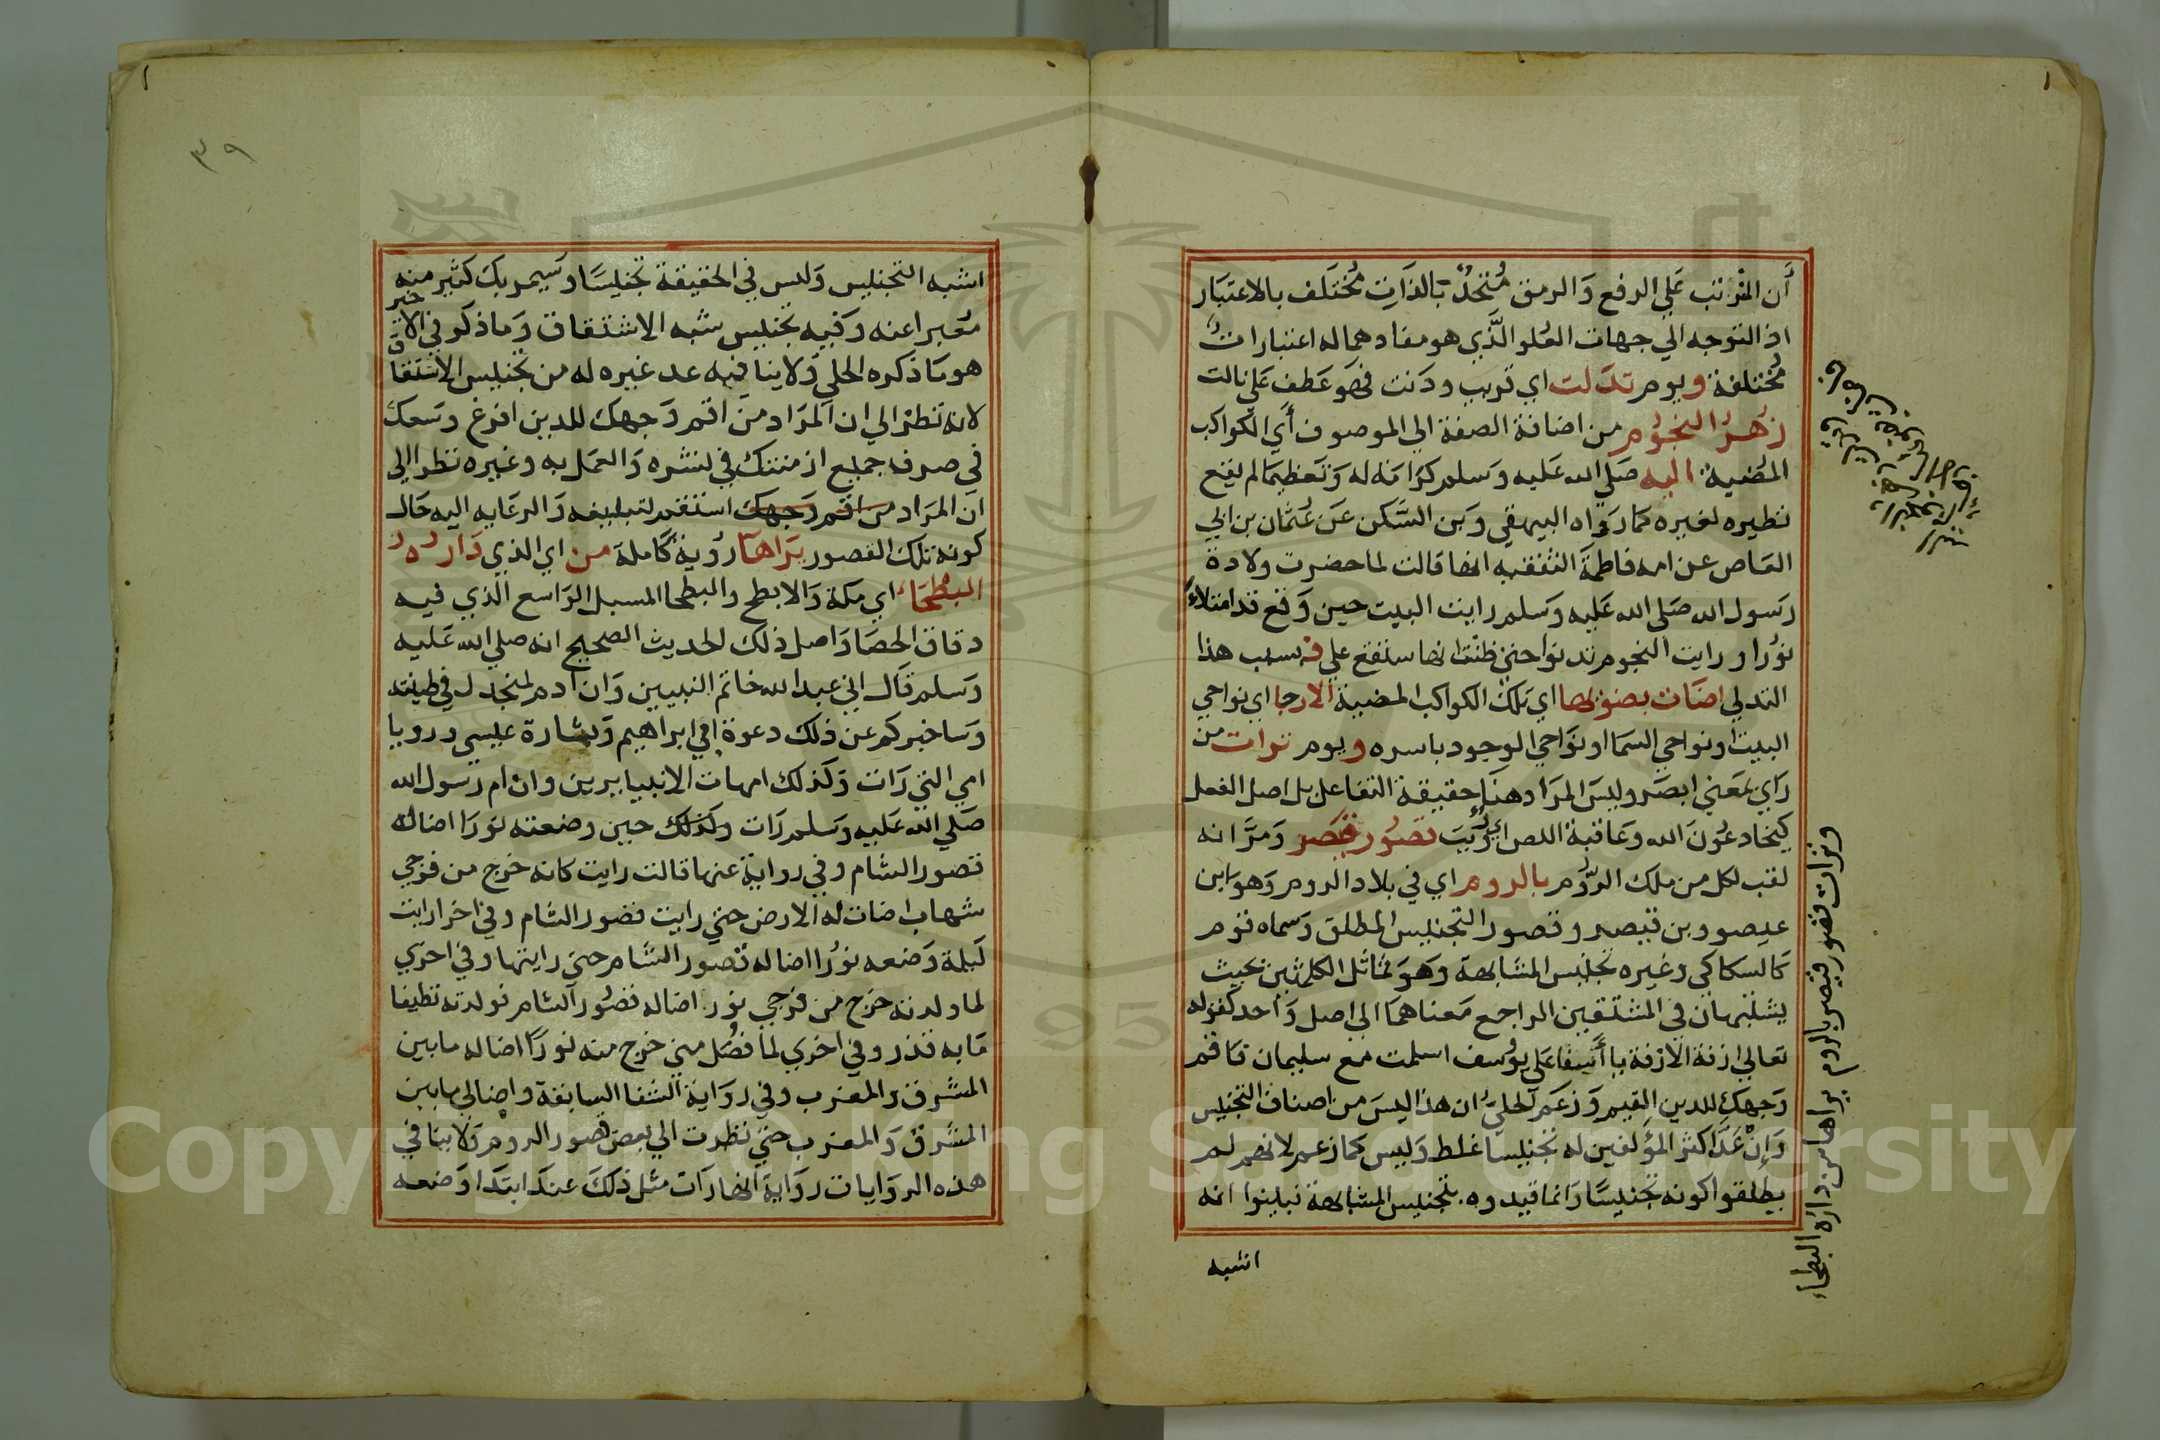 أن المترتب على الرفع والرمق متحد بالذات مختلف بالاعتبار
اذ التوجه الي جهات العلو الذي هو مفادهما له اعتبارات
مختلفة ويوم تدلت اي قربت ودنت فهو عطف على نالت
زهر النجوم من اضافة الصفة الي الموصوف أي الكواكب
المضية اليه صلي الله عليه وسلم كرامة له وتعظيما لم يقع
نظيره لغيره مما رواه البيهقي وبن السكن عن عثمان بن ابي
العاص عن امه فاطمة الثقفيه انها قالت لما حضرت ولادة
رسول الله صلي الله عليه وسلم رايت البيت حين وقع قد امتلاء
نورا ورايت النجوم تدنوا حتى ظننت انها ستقع علي فبسبب هذا
التدلي اضات بضوئها اي تلك الكواكب المضيية الارجا اي نواحي
البيت او نواحي السما او نواحي الوجود باسره ويوم تراات من
راي بمعني ابصر وليس المراد هنا حقيقة التفاعل بل اصل الفعل
كيخادعون الله وعاقبة اللص اي رُئِيَت قصور قيصر ومر انه
لقب لكل من ملك الروم بالروم اي في بلاد الروم وهو ابن
عيصو وبن قيصر وقصور التجنيس المطلق وسماه قوم
كالسكاكي وغيره تجنيس المشابهة وهو تماثل الكلمتين بحيث
يشتبهان في المشتقين الراجع معناهما الي اصل واحد كقوله
تعالي ازفة الازفة يا أسفا علي يوسف اسلمت مع سليمان فاقم
وجهك للدين القيم وزعم الحلي ان هذا ليس من اصناف التجنيس
وان عد اكثر المؤلفين له تجنيسا غلط وليس كما زعم لانهم لم
يطلقوا كونه تجنيسا وانما قيدوه بتجنيس المشابهة نبلينوا انه
اشبه
وتراات قصور قيصر بالروم يراها من داره البطحاء
٣٩
اشبه التجنيس وليس في الحقيقة تجنيسا وسيمر بك كثير منه
معبرا عنه وفيه تجنيس شبه الاشتقاق وما ذكر في الاخير
هو ما ذكره الحلي ولا ينافيه عد غيره له من تجنيس الاشتقاق
لانه نظر الي ان المراد من اقم وجهك للدين افرغ وسعك
في صرف جميع ازمنتك في نشره والعمل به وغيره نظر الي
ان المراد من اقم وجهك استقم لتبليغه والرعايه اليه حال
كونه تلك القصور يراها روية كاملة من اي الذي داره
البطحاء اي مكة والابطح والبطحا المسيل الواسع الذي فيه
دقاق الحصا واصل ذلك الحديث الصحيح انه صلي الله عليه
وسلم قال اني عبد الله خاتم النبيين وان ادم لمنجدل في طينته
وساخبركم عن ذلك دعوة ابي ابراهيم وبشارة عيسي ورويا
امي التي رات وكذلك امهات الانبيا يرين وان ام رسول الله
صلي الله عليه وسلم رات وكذلك حين وضعته نورا اضات له
قصور الشام وفي رواية عنها قالت رايت كانه خرج من فرجي
شهاب اضات له الارض حتي رايت قصور الشام وفي اخرا رايت
ليلة وضعه نورا اضا له قصور الشام حتى رايتها وفي اخري
لما ولدته خرج من فرجي نور اضا له قصور الشام فولدته نظيفا
ما به قذر وفي اخري لما فصل مني خرج منه نورا اضا له ما بين
المشرق والمغرب وفي رواية الشفا السابقة واضا لي ما بين
المشرق والمغرب حتي نظرت الي بعض قصور الروم ولا ينافي
هذه الروايات رواية انها رات مثل ذلك عند ابتدا وضعه